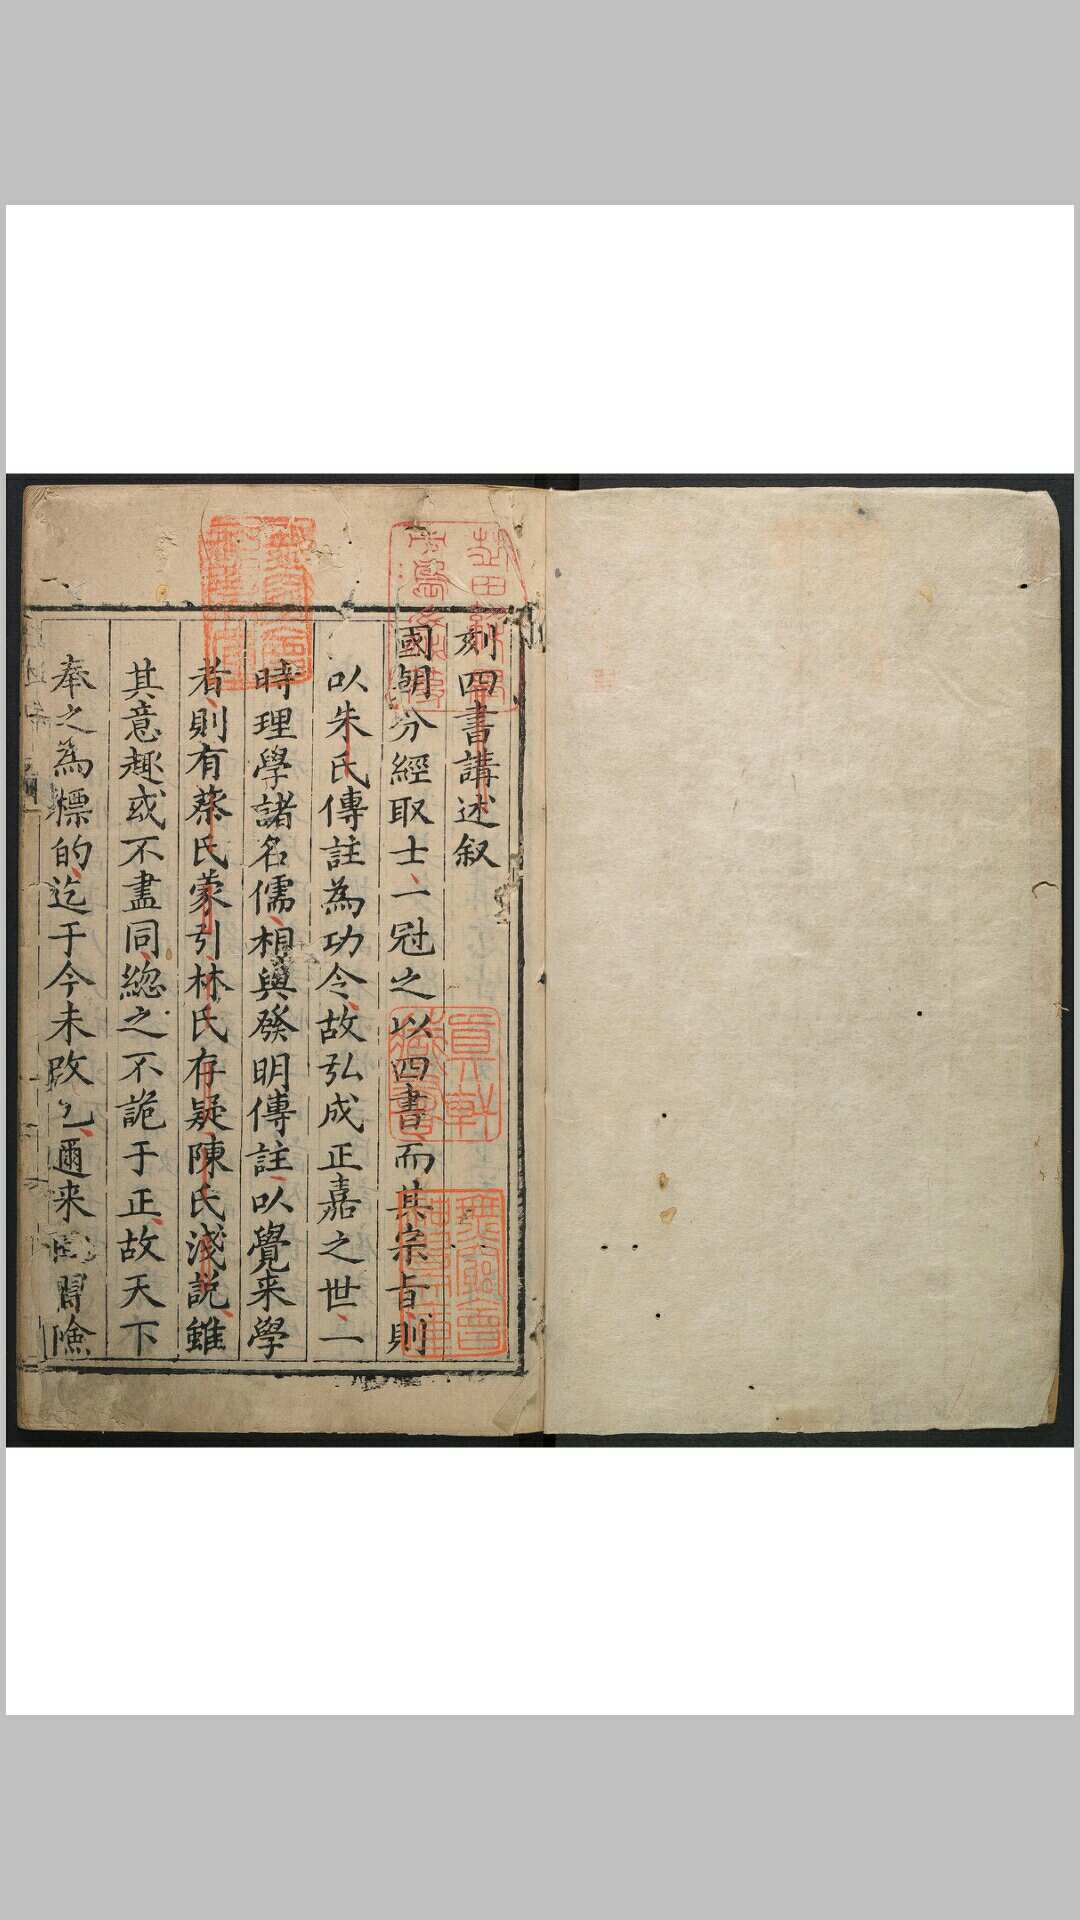 刻四書講述叙
國朝分經取士一冠之以四書而其宗旨則
以朱氏傳註為功令故弘成正嘉之世一
時理學諸名儒相與發明傳註以覺来學
者則有蔡氏蒙引林氏存疑陳氏淺說雖
其意趣或不盡同總之不詭于正故天下
奉之為標的迄于今未改也邇来 習險